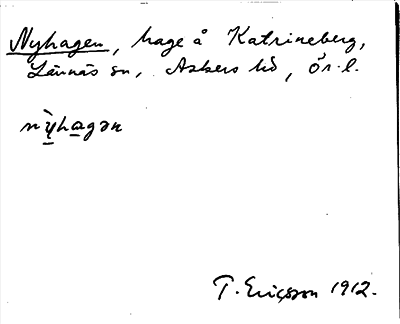 Nyhagen, hage å Katrineberg,
Lännäs sn, Askers hd, Ör. l.
nỳhagən
T. Ericsson 1912.